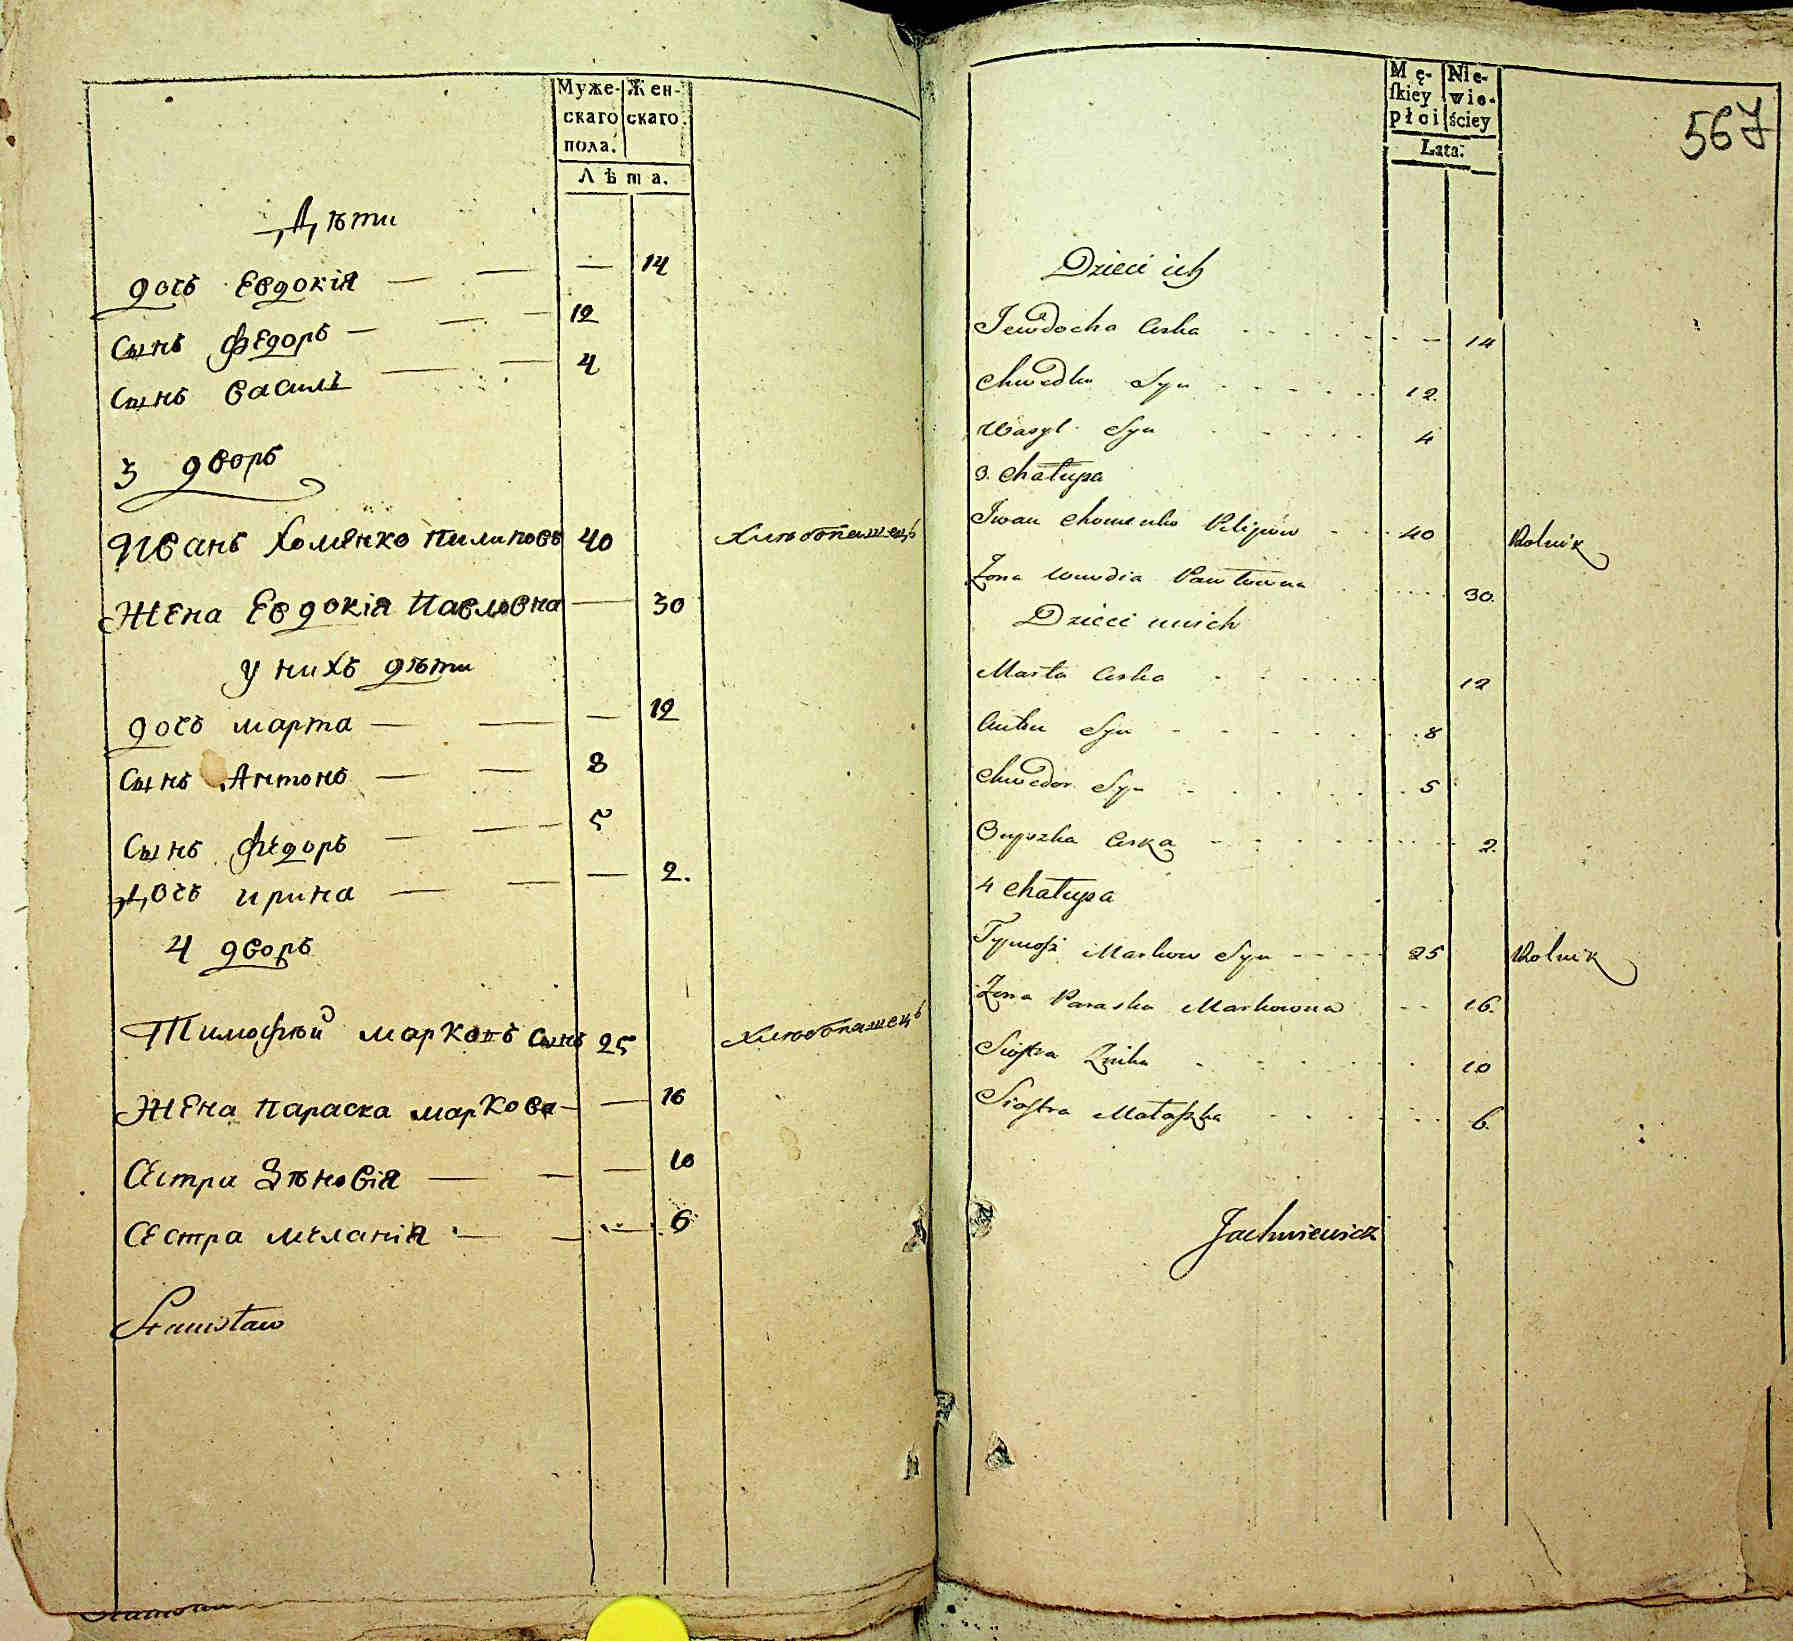 Муже- Жен-
скаго скаго.
пола.
Лѣта.
Дѣти
дочь Евдокія — — — 14
Сынъ Федоръ — — — 12
Сынъ Василь — — 4
3 дворъ
Иванъ Хоменко Пилиповъ 40 Хлѣбопашецъ
Жена Евдокія Павловна — 30
у нихъ дѣти
дочь марта — — — 12
Сынъ Антонъ — — 8
Сынъ Федоръ — — — 5
Дочь ирина — — — 2.
4 дворъ
Тимофѣй марковъ сынъ 25 Хлѣбопашецъ
Жена Параска маркова — — 16
Сестра Зѣновія — — — 10
Сестра меланія — — — 6
Stanisław
Mę- Nie-
skiey wie-
płci ściey
Lata:
567
Dzieci ich
Jewdocha Curka — 14
Chwedko Syn 12.
Wasyl Syn 4
3. Chałupa
Iwan Chomenko Pilipow 40 Rolnik
Żona Pawłowna 30.
Dzieci unich
Marta Curka 12
Anton Syn 8
Chwedor Syn 5
Curka 2.
4 Chałupa
Tymosz Markow Syn 25 Rolnik
Żona Paraska Markowna 16.
Siostra Zinka 10
Siostra Małaszka 6.
Jachniewicz